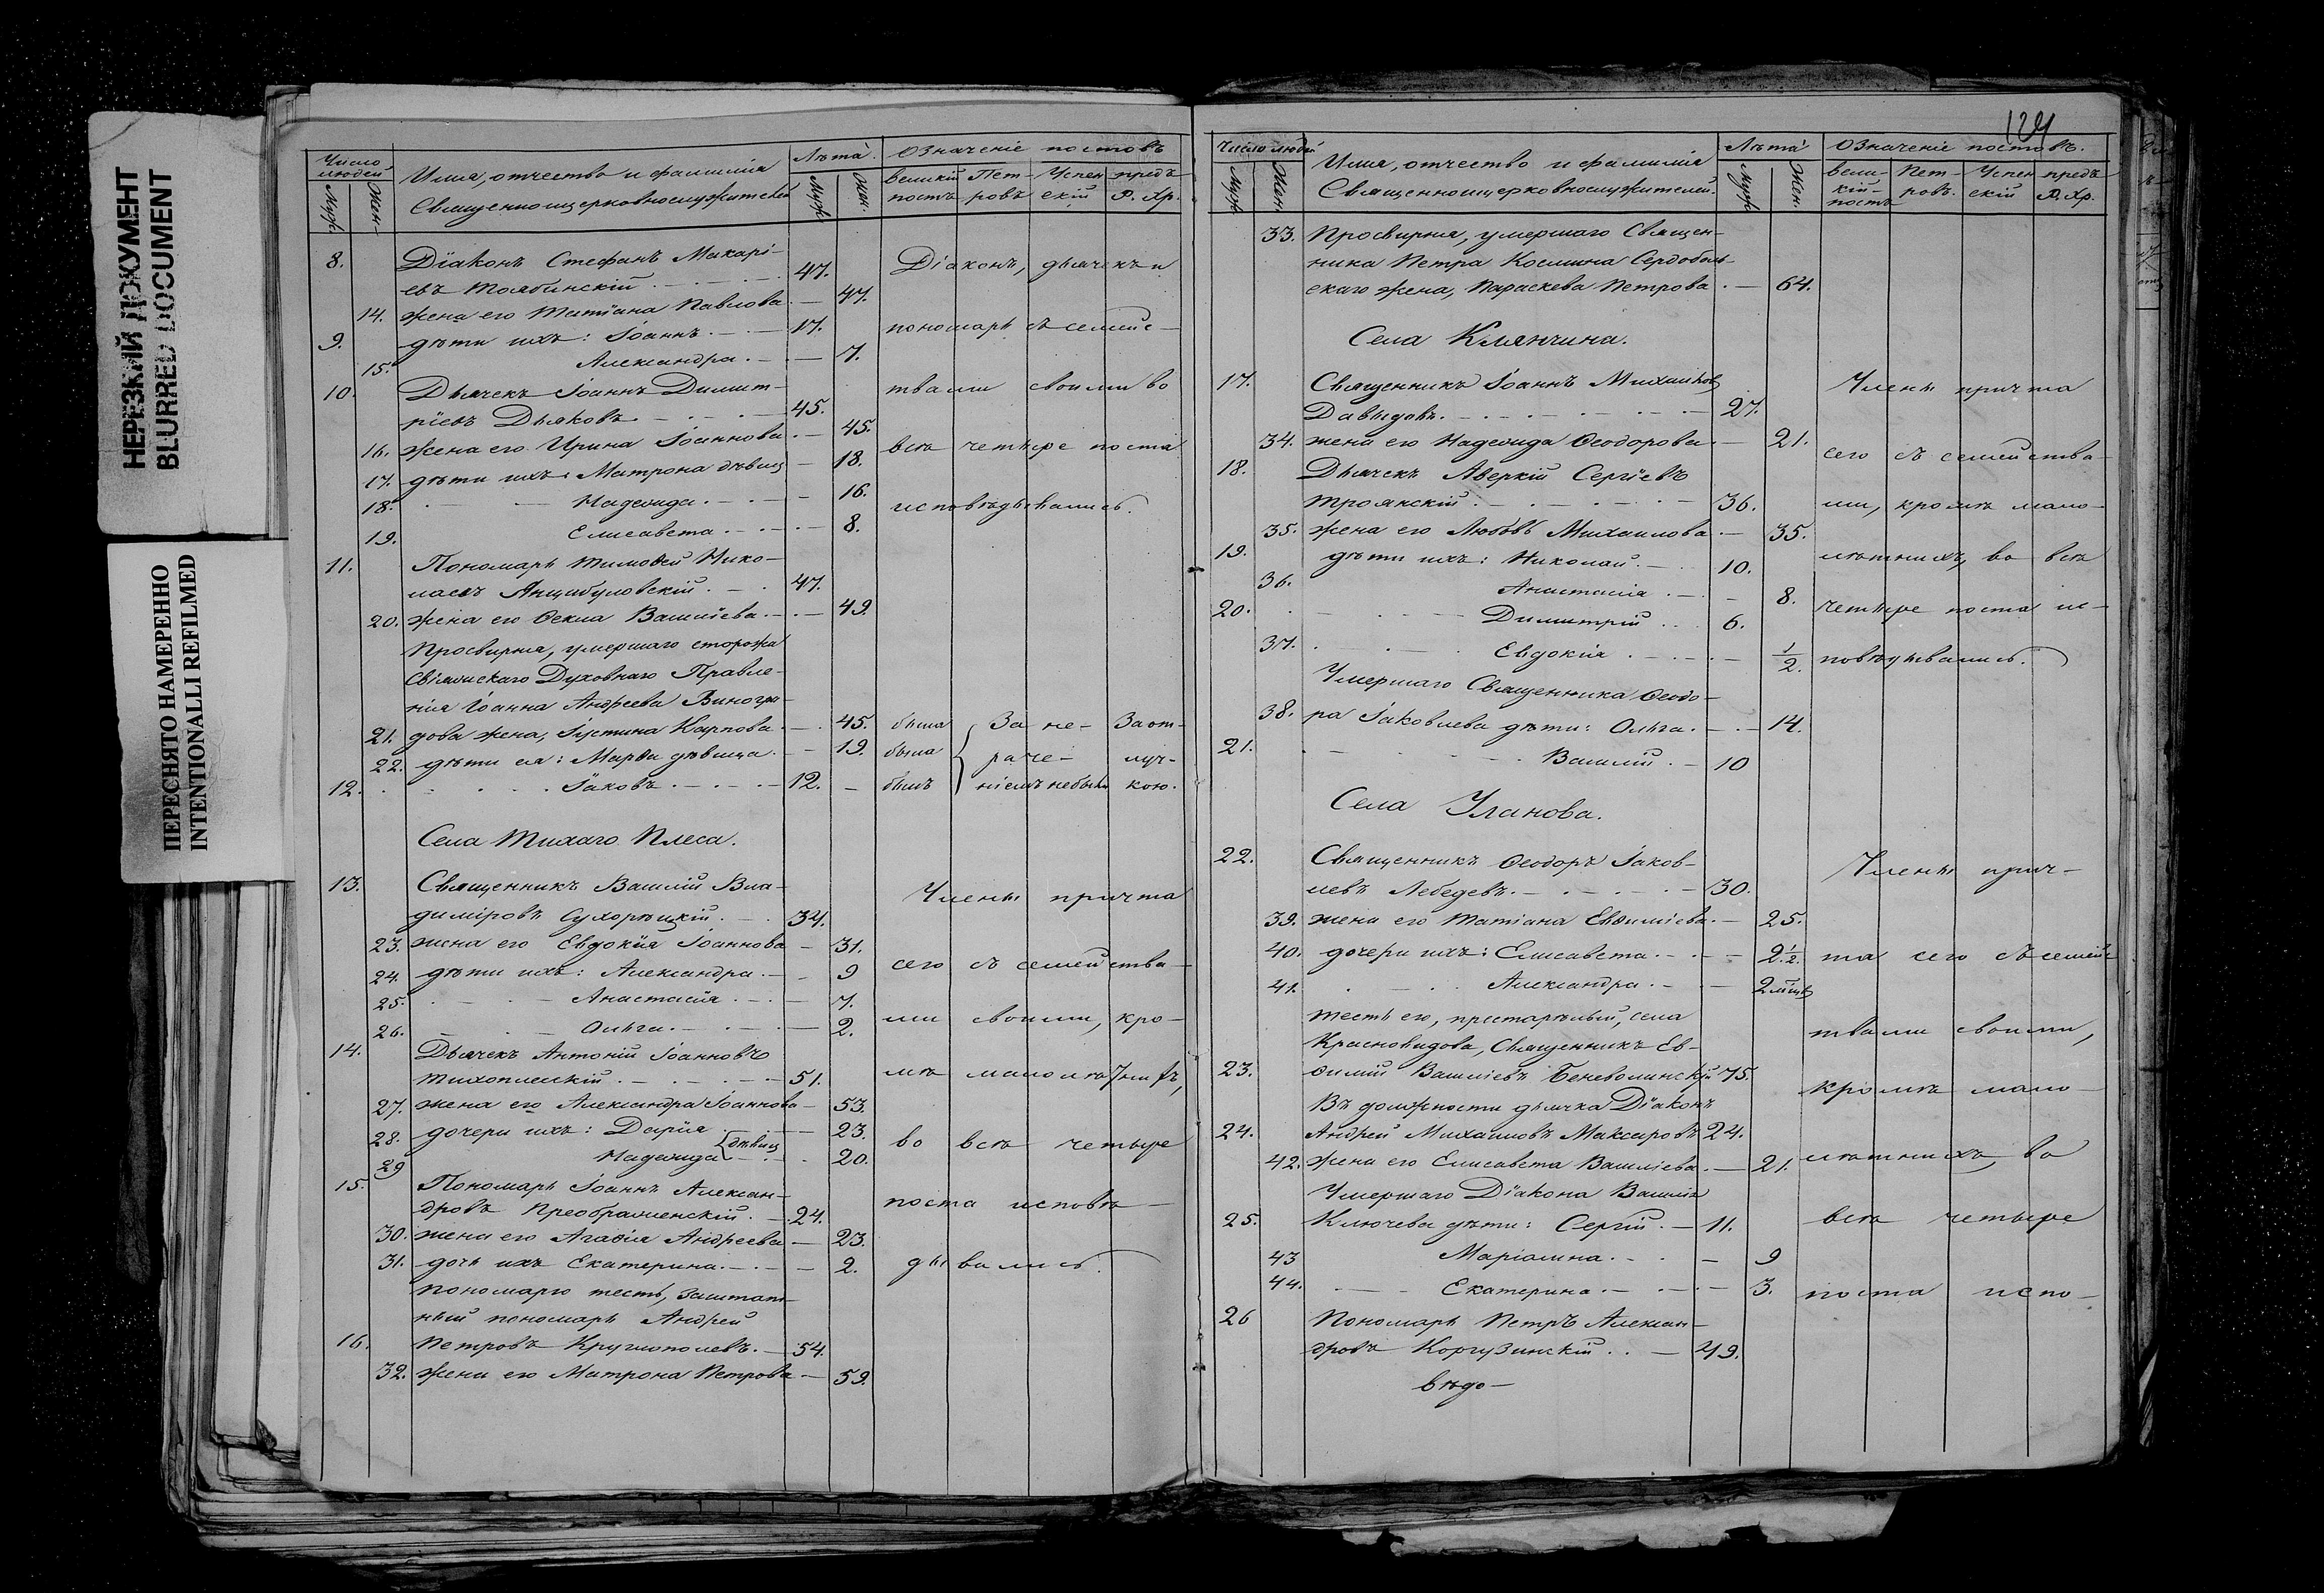 НЕРЕЗКИЙ ДОКУМЕНТ
BLURRED DOCUMENT
ПЕРЕСНЯТО НАМЕРЕННО
INTENTIONALLI REFILMED
Число людей
Муж. Жен.
Имя, отчество и фамилія
Священноцерковнослужителей
Лѣта.
Муж. Жен.
Означеніе постовъ
великій постъ Петровъ Успенскій предъ Р. Хр.
8. Діаконъ Стефанъ Макарі-
евъ 47.
14. жена его Татіана Павлова 47.
9. дѣти ихъ: Іоаннъ 17.
15. Александра 7.
10. Дьячекъ Іоаннъ Димит-
ріевъ Дьяковъ 45.
16. жена его Ирина Іоаннова 45.
17. дѣти ихъ: Матрона дѣвиц 18.
18. Надежда 16.
19. Елисавета 8.
11. Пономарь Тимоѳей Нико-
лаевъ 47.
20. жена его Ѳекла Василіева 49.
Просвирня, умершаго сторожа
Свіяжскаго Духовнаго Правле-
нія Іоанна Андреева Виногра-
21. дова жена, Іустина Карпова 45.
22. дѣти ея: Марѳа дѣвица 19.
12. Іаковъ 12.
Діаконъ, дьячекъ и
пономарь съ семейс-
твами своими во
всѣ четыре поста
исповѣдывались.
была За не- За от-
была раче- луч-
былъ ніемъ не были кою.
Села Тихаго Плеса.
13. Священникъ Василій Вла-
диміровъ Сухорѣцкій 34.
23. жена его Евдокія Іоаннова 31.
24. дѣти ихъ: Александра 9
25. Анастасія 7.
26. Ольга 2.
14. Дьячекъ Антоній Іоанновъ
Тихоплесскій 51.
27. жена его Александра Іоаннова 53.
28. дочери ихъ: Дарія 23.
дѣвиц
29 Надежда 20.
15. Пономарь Іоаннъ Алексан-
дровъ Преображенскій 24.
30. жена его Агаѳія Андреева 23.
31. дочь ихъ Екатерина 2.
пономарю тесть, заштат-
ный пономарь Андрей
16. Петровъ Круглополевъ 54.
32. жена его Матрона Петрова 59.
Члены причта
сего съ семейства-
ми своими, кро-
мѣ малолѣтнихъ,
во всѣ четыре
поста исповѣ-
дывались.
129
Число людей
Муж. Жен.
Имя, отчество и фамилія
Священноцерковнослужителей.
Лѣта
Муж. Жен.
Означеніе постовъ.
вели-кій-постъ Пет-ровъ. Успенскій предъ Р. Хр.
33. Просвирня, умершаго Священ-
ника Петра Космина Сердоболь-
скаго жена, Параскева Петрова 64.
Села Клянчина.
17. Священникъ Іоаннъ Михайлов
Давыдовъ 27.
34. жена его Надежда Ѳеодорова 21.
18. Дьячекъ Аверкій Сергіевъ
Троянскій 36.
35. жена его Любовь Михаилова 35.
19. дѣти ихъ: Николай 10.
36. Анастасія 8.
20. Димитрій 6.
37. Евдокія 1/2.
Умершаго Священника Ѳеодо-
38. ра Іаковлева дѣти: Ольга 14.
21. Василій 10
Члены причта
сего съ семейства-
ми, кромѣ мало-
лѣтнихъ, во всѣ
четыре поста ис-
повѣдывались.
Села Уланова.
22. Священникъ Ѳеодоръ Іаков-
левъ Лебедевъ 30.
39. жена его Татіана Евѳиміева 25.
40. дочери ихъ: Елисавета 2 1/2.
41. Александра 2 мѣсц
тесть его, престарѣлый, села
Красновидова, Священникъ Ев-
23. ѳимій Василіевъ Беневолинскій 75.
Въ должности дьячка Діаконъ
24. Андрей Михаиловъ Максаровъ 24.
42. жена его Елисавета Василіева 21.
Умершаго Діакона Василія
25. Ключева дѣти: Сергій 11.
43 Маріамна 9
44. Екатерина 3.
26 Пономарь Петръ Алексан-
дровъ Коргузинскій 49.
Члены прич-
та сего съ семейс-
твами своими,
кромѣ мало-
лѣтнихъ, во
всѣ четыре
поста испо-
вѣдо-